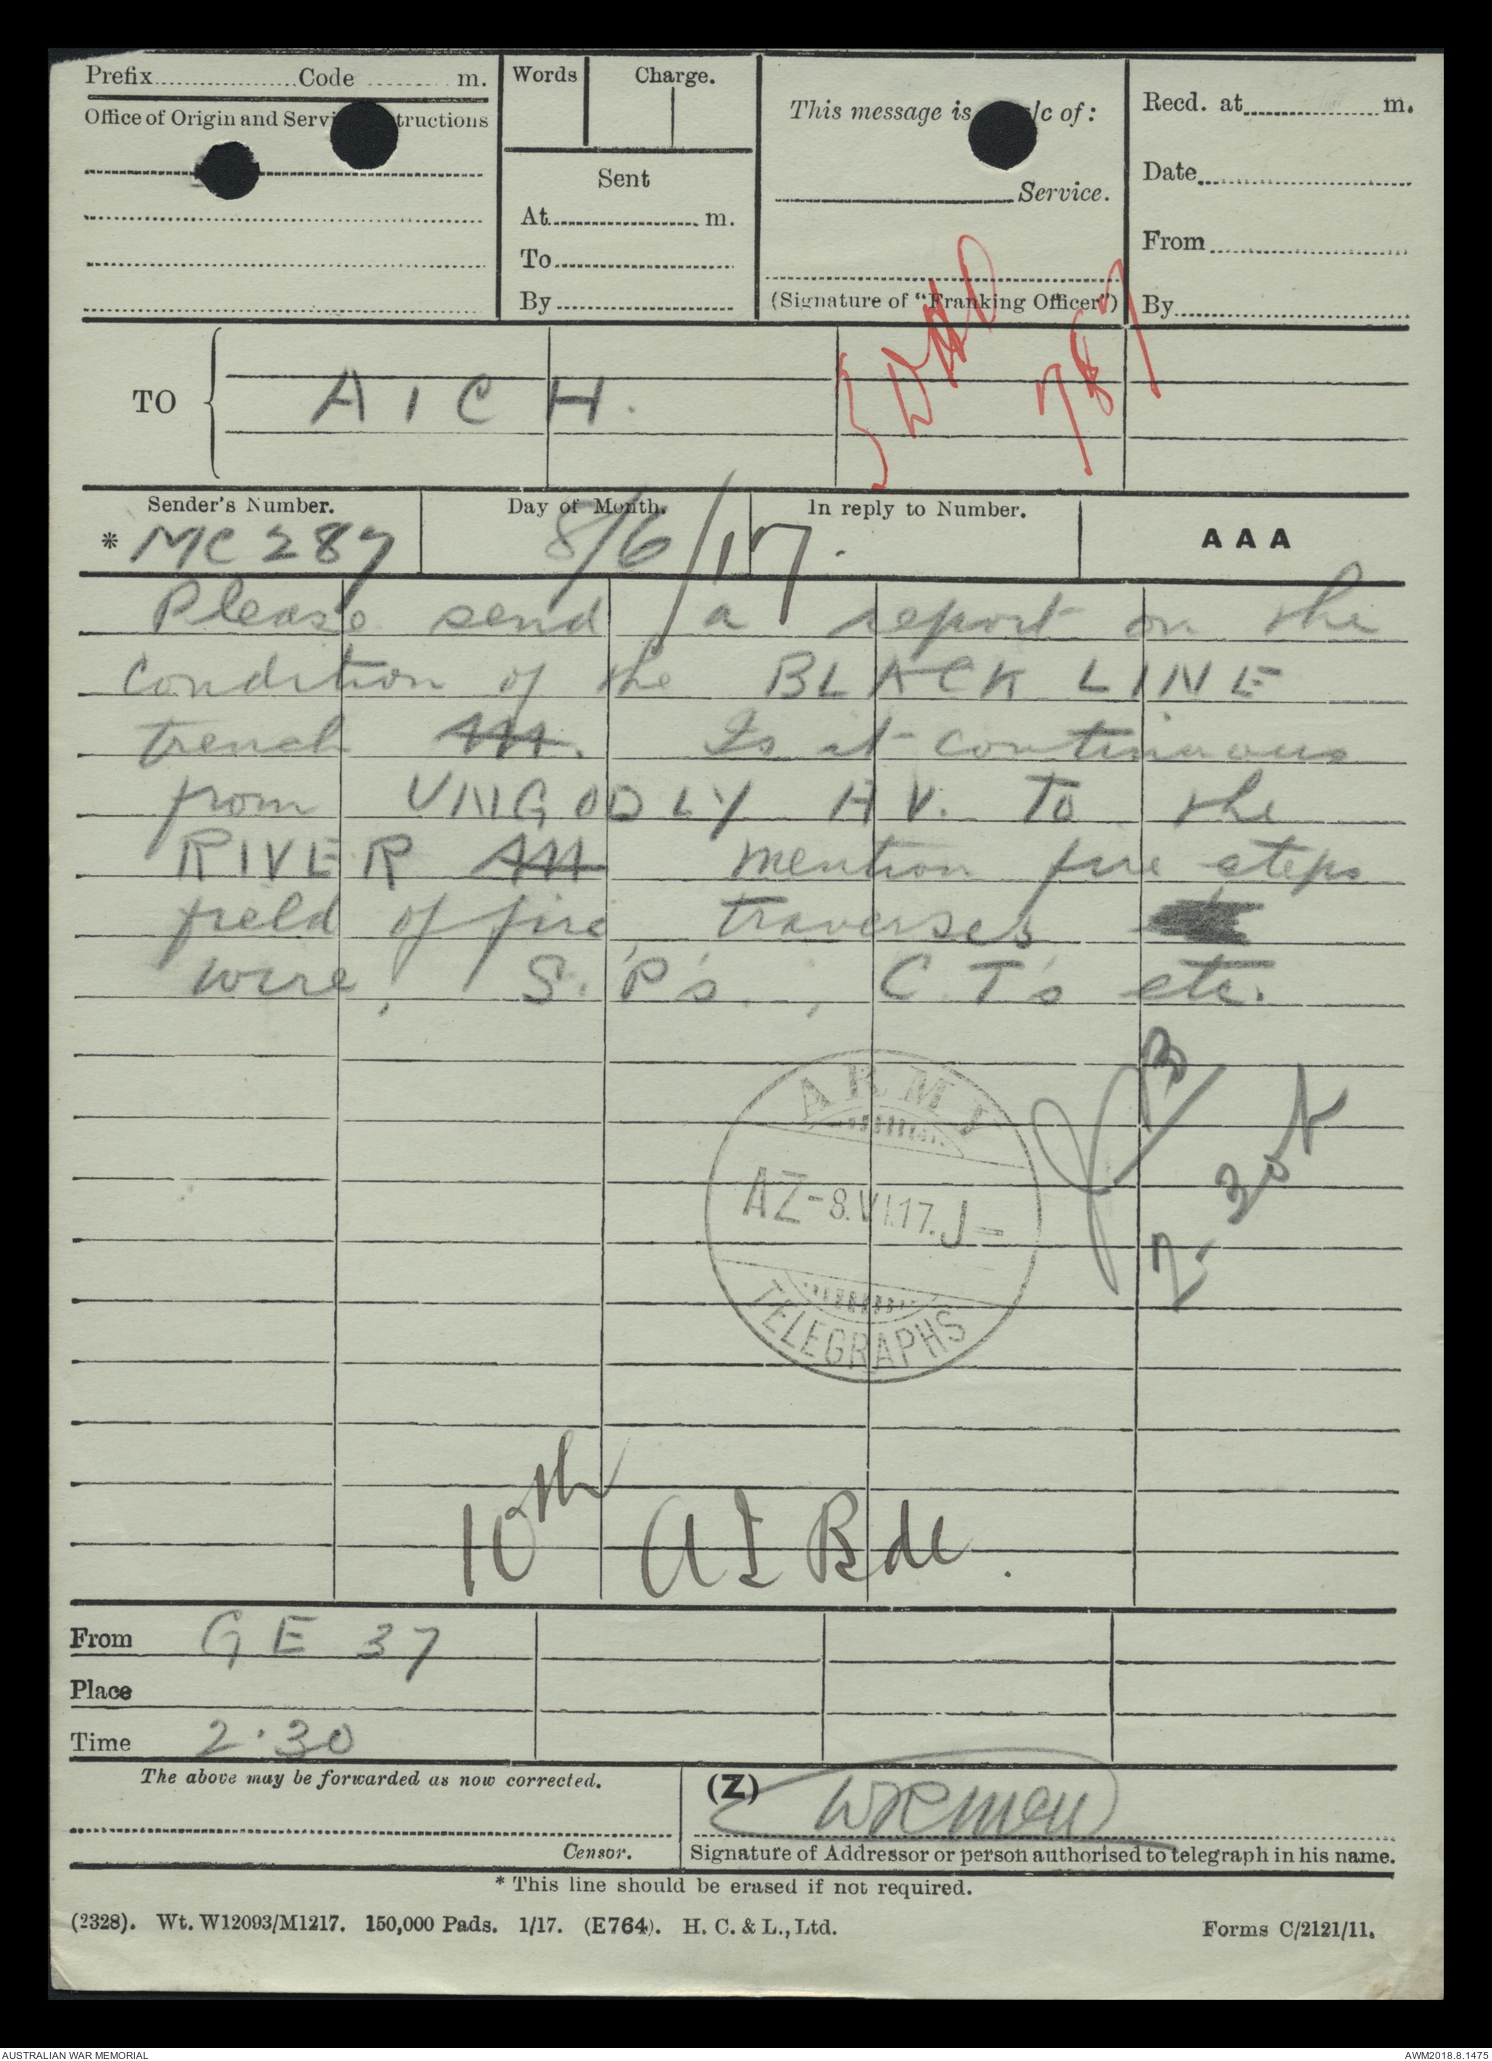 Prefix Code m.
Office of Origin and Servi tructions
Words Charge.
Sent
At m.
To
By
This message is /c of:
Service.
(Signature of "Franking Officer")
Recd. at m.
Date
From
By
TO A I C H.
Sender's Number. Day of Month. In reply to Number. AAA
* MC 287 8/6/17.
Please send a report on the
condition of the BLACK LINE
trench AAA. Is it continuous
from UNGODLY AV. To the
RIVER AAA mention fire steps
field of fire, traverses
wire, S.P's., C.T's etc.
ARMY
AZ-8.VI.17.J-
TELEGRAPHS
10th A I Bde.
From GE 37
Place
Time 2.30
The above may be forwarded as now corrected. (Z)
Censor. Signature of Addressor or person authorised to telegraph in his name.
* This line should be erased if not required.
(2328). Wt. W12093/M1217. 150,000 Pads. 1/17. (E764). H. C. & L., Ltd. Forms C/2121/11.
AUSTRALIAN WAR MEMORIAL AWM2018.8.1475